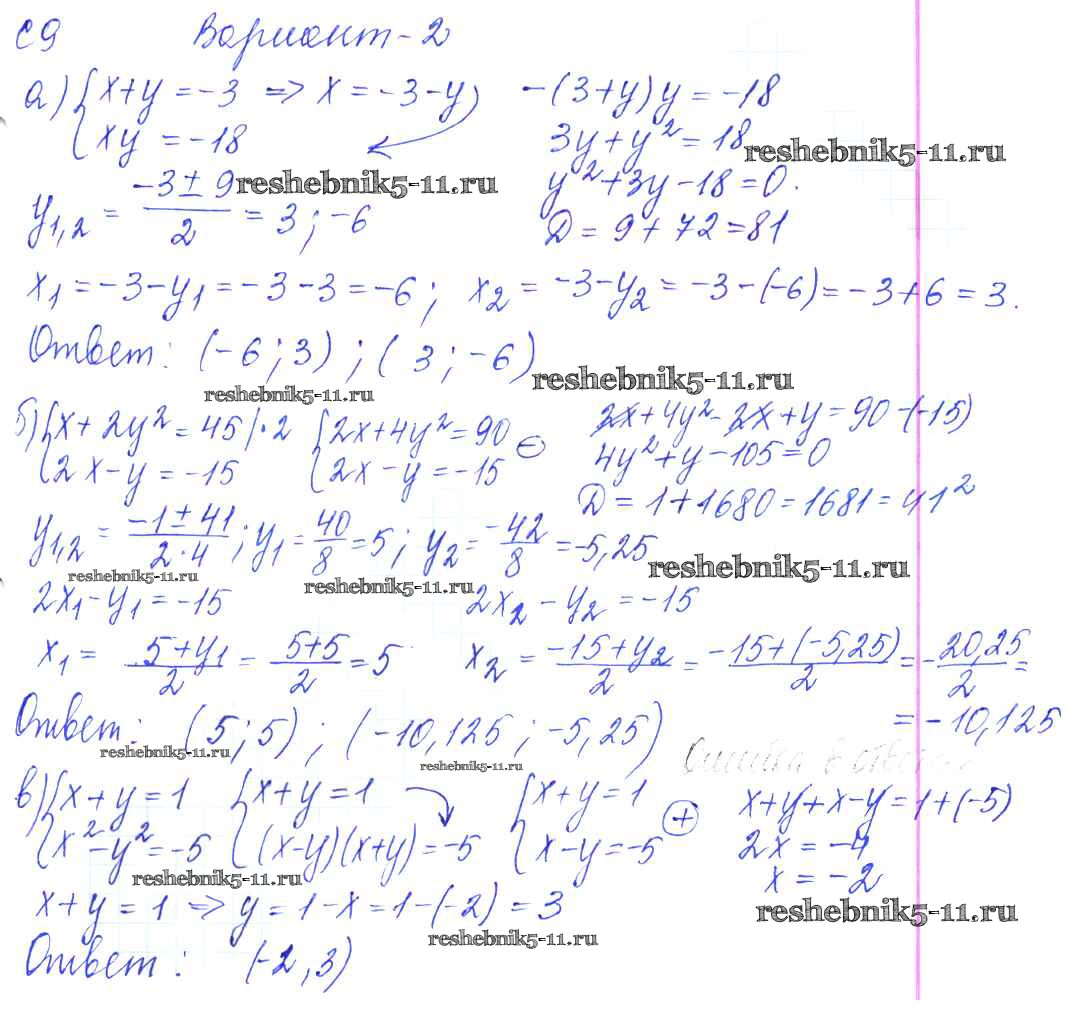 С9 Вариант-2
а) {x+y=-3 => x=-3-y) -(3+y)y=-18
{xy=-18 3y+y²=18 reshebnik5-11.ru
reshebnik5-11.ru y²+3y-18=0.
y₁,₂ = (-3±9)/2 = 3; -6 D=9+72=81
x₁=-3-y₁=-3-3=-6; x₂=-3-y₂=-3-(-6)=-3+6=3.
Ответ: (-6;3);(3;-6) reshebnik5-11.ru
reshebnik5-11.ru
б) {x+2y²=45|·2 {2x+4y²=90 ⊖ 2x+4y²-2x+y=90-(-15)
{2x-y=-15 {2x-y=-15 4y²+y-105=0
D=1+1680=1681=41²
y₁,₂ = (-1±41)/(2·4); y₁=40/8=5; y₂=-42/8=-5,25 reshebnik5-11.ru
reshebnik5-11.ru reshebnik5-11.ru
2x₁-y₁=-15 2x₂-y₂=-15
x₁ = (5+y₁)/2 = (5+5)/2 = 5 x₂ = (-15+y₂)/2 = (-15+(-5,25))/2 = -20,25/2 =
= -10,125
Ответ: (5;5); (-10,125; -5,25)
reshebnik5-11.ru reshebnik5-11.ru Ошибка в
в) {x+y=1 {x+y=1 {x+y=1 ⊕ x+y+x-y=1+(-5)
{x²-y²=-5 {(x-y)(x+y)=-5 {x-y=-5 2x=-4
reshebnik5-11.ru x=-2
x+y=1 => y=1-x=1-(-2)=3 reshebnik5-11.ru
reshebnik5-11.ru
Ответ: (-2,3)